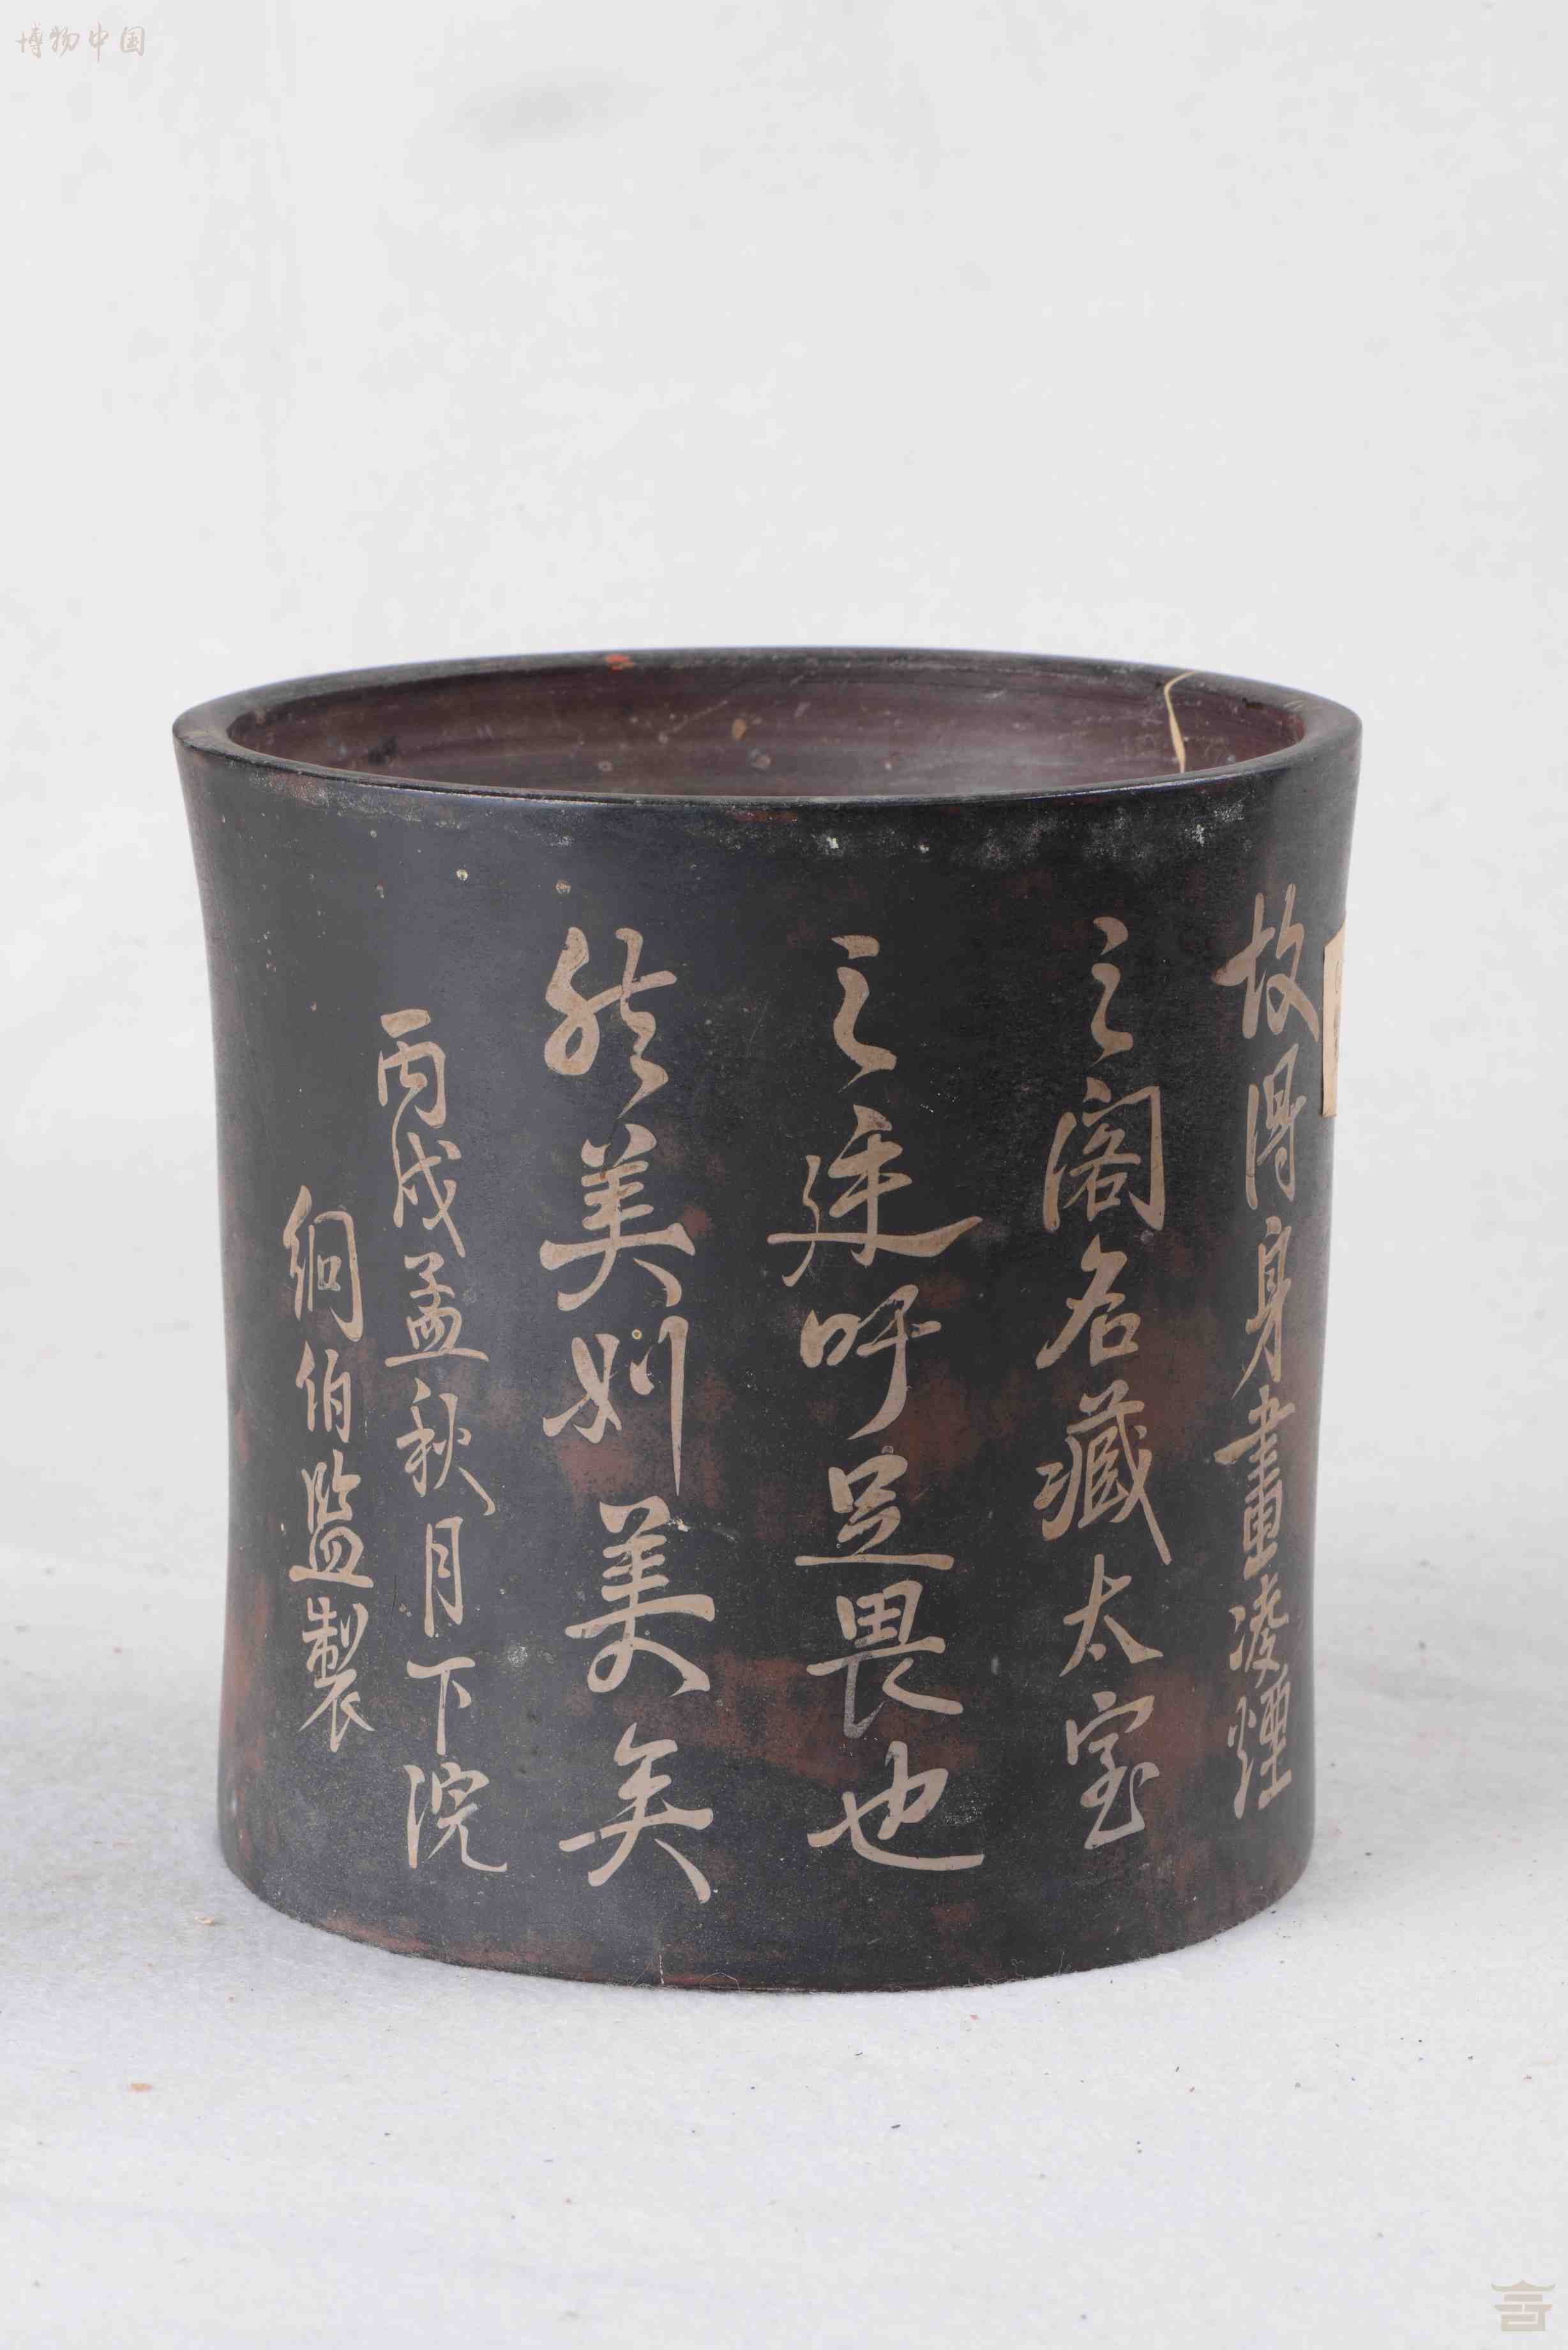 博物中国
故得身畫凌煙
之閣名藏太室
之廷吁足畏也
然美則美矣
丙戌孟秋月下浣
絅伯監製